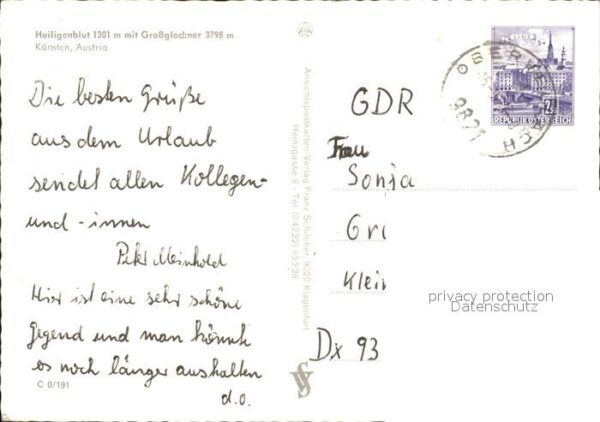 Heiligenblut 1301 m mit Großglockner 3798 m
Kärnten, Austria
Die besten Grüße
aus dem Urlaub
sendet allen Kollegen-
und -innen
Peter Meinhold
Hier ist eine sehr schöne
Gegend und man könnte
es noch länger aushalten
d.o.
C 0/191
Ansichtspostkarten-Verlag Franz Schilcher, 9020 Klagenfurt
GDR
Frau
Sonja
Gri
Klein
Dx 93
LINZ
2S
REPUBLIK ÖSTERREICH
9821
privacy protection
Datenschutz